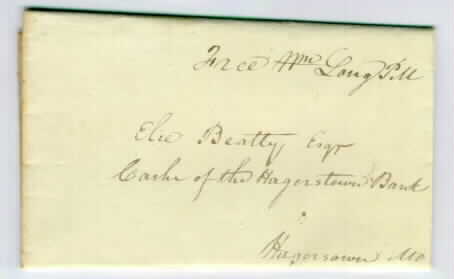 Free Wm Long P.M
Elie Beatty Esqr
Cashr of the Hagerstown Bank
Hagerstown Md